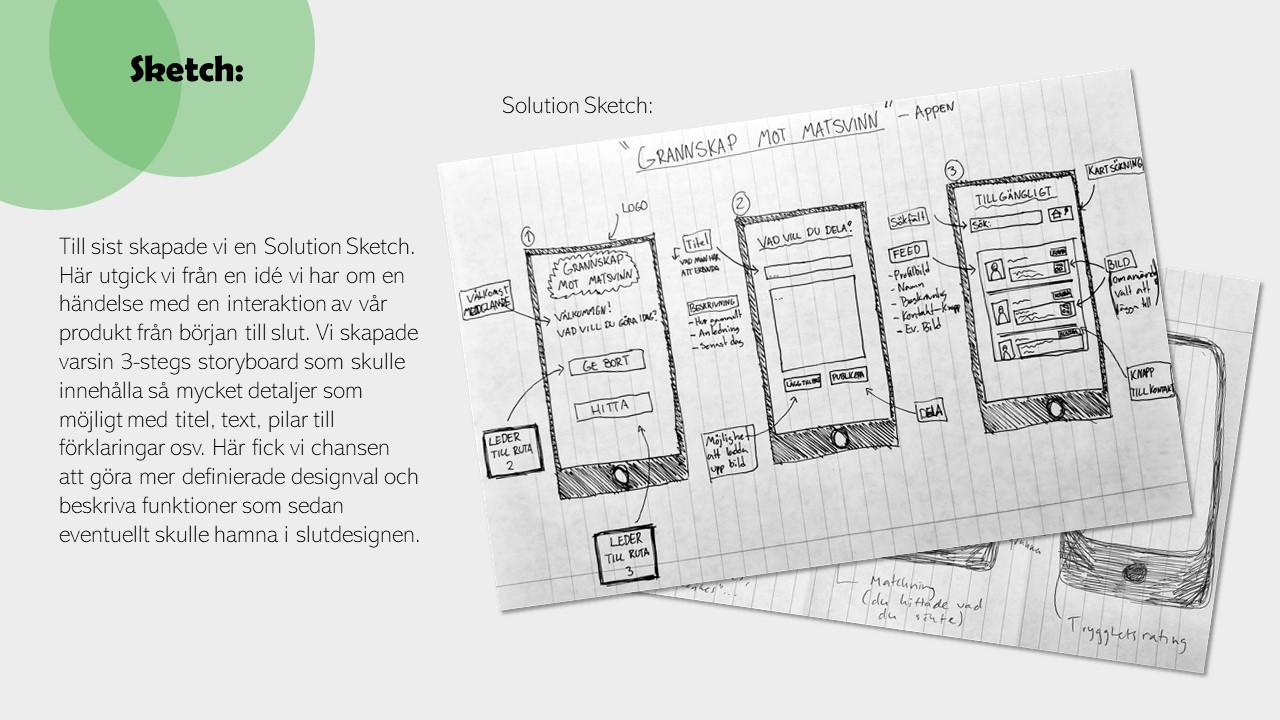 Sketch:
Solution Sketch:
Till sist skapade vi en Solution Sketch.
Här utgick vi från en idé vi har om en
händelse med en interaktion av vår
produkt från början till slut. Vi skapade
varsin 3-stegs storyboard som skulle
innehålla så mycket detaljer som
möjligt med titel, text, pilar till
förklaringar osv. Här fick vi chansen
att göra mer definierade designval och
beskriva funktioner som sedan
eventuellt skulle hamna i slutdesignen.
"GRANNSKAP MOT MATSVINN" – APPEN
1
LOGO
GRANNSKAP
MOT MATSVINN
VÄLKOMST
VÄLKOMMEN!
VAD VILL DU GÖRA IDAG?
GE BORT
HITTA
LEDER
TILL RUTA
2
LEDER
TILL RUTA
3
2
Titel
VAD MAN HAR
ATT ERBJUDA
BESKRIVNING
- Anledning
- Senast dag
VAD VILL DU DELA?
PUBLICERA
Möjlighet
att ladda
upp bild
DELA
3
KARTSÖKNING
TILLGÄNGLIGT
Sök:
Sökfält
FEED
- Profilbild
- Namn
- Beskrivning
- Kontakt-Knapp
- Ev. Bild
BILD
valt att
lägga till
KNAPP
TILL KONTAKT
Matchning
(du hittade vad
du sökte)
Trygghetsrating